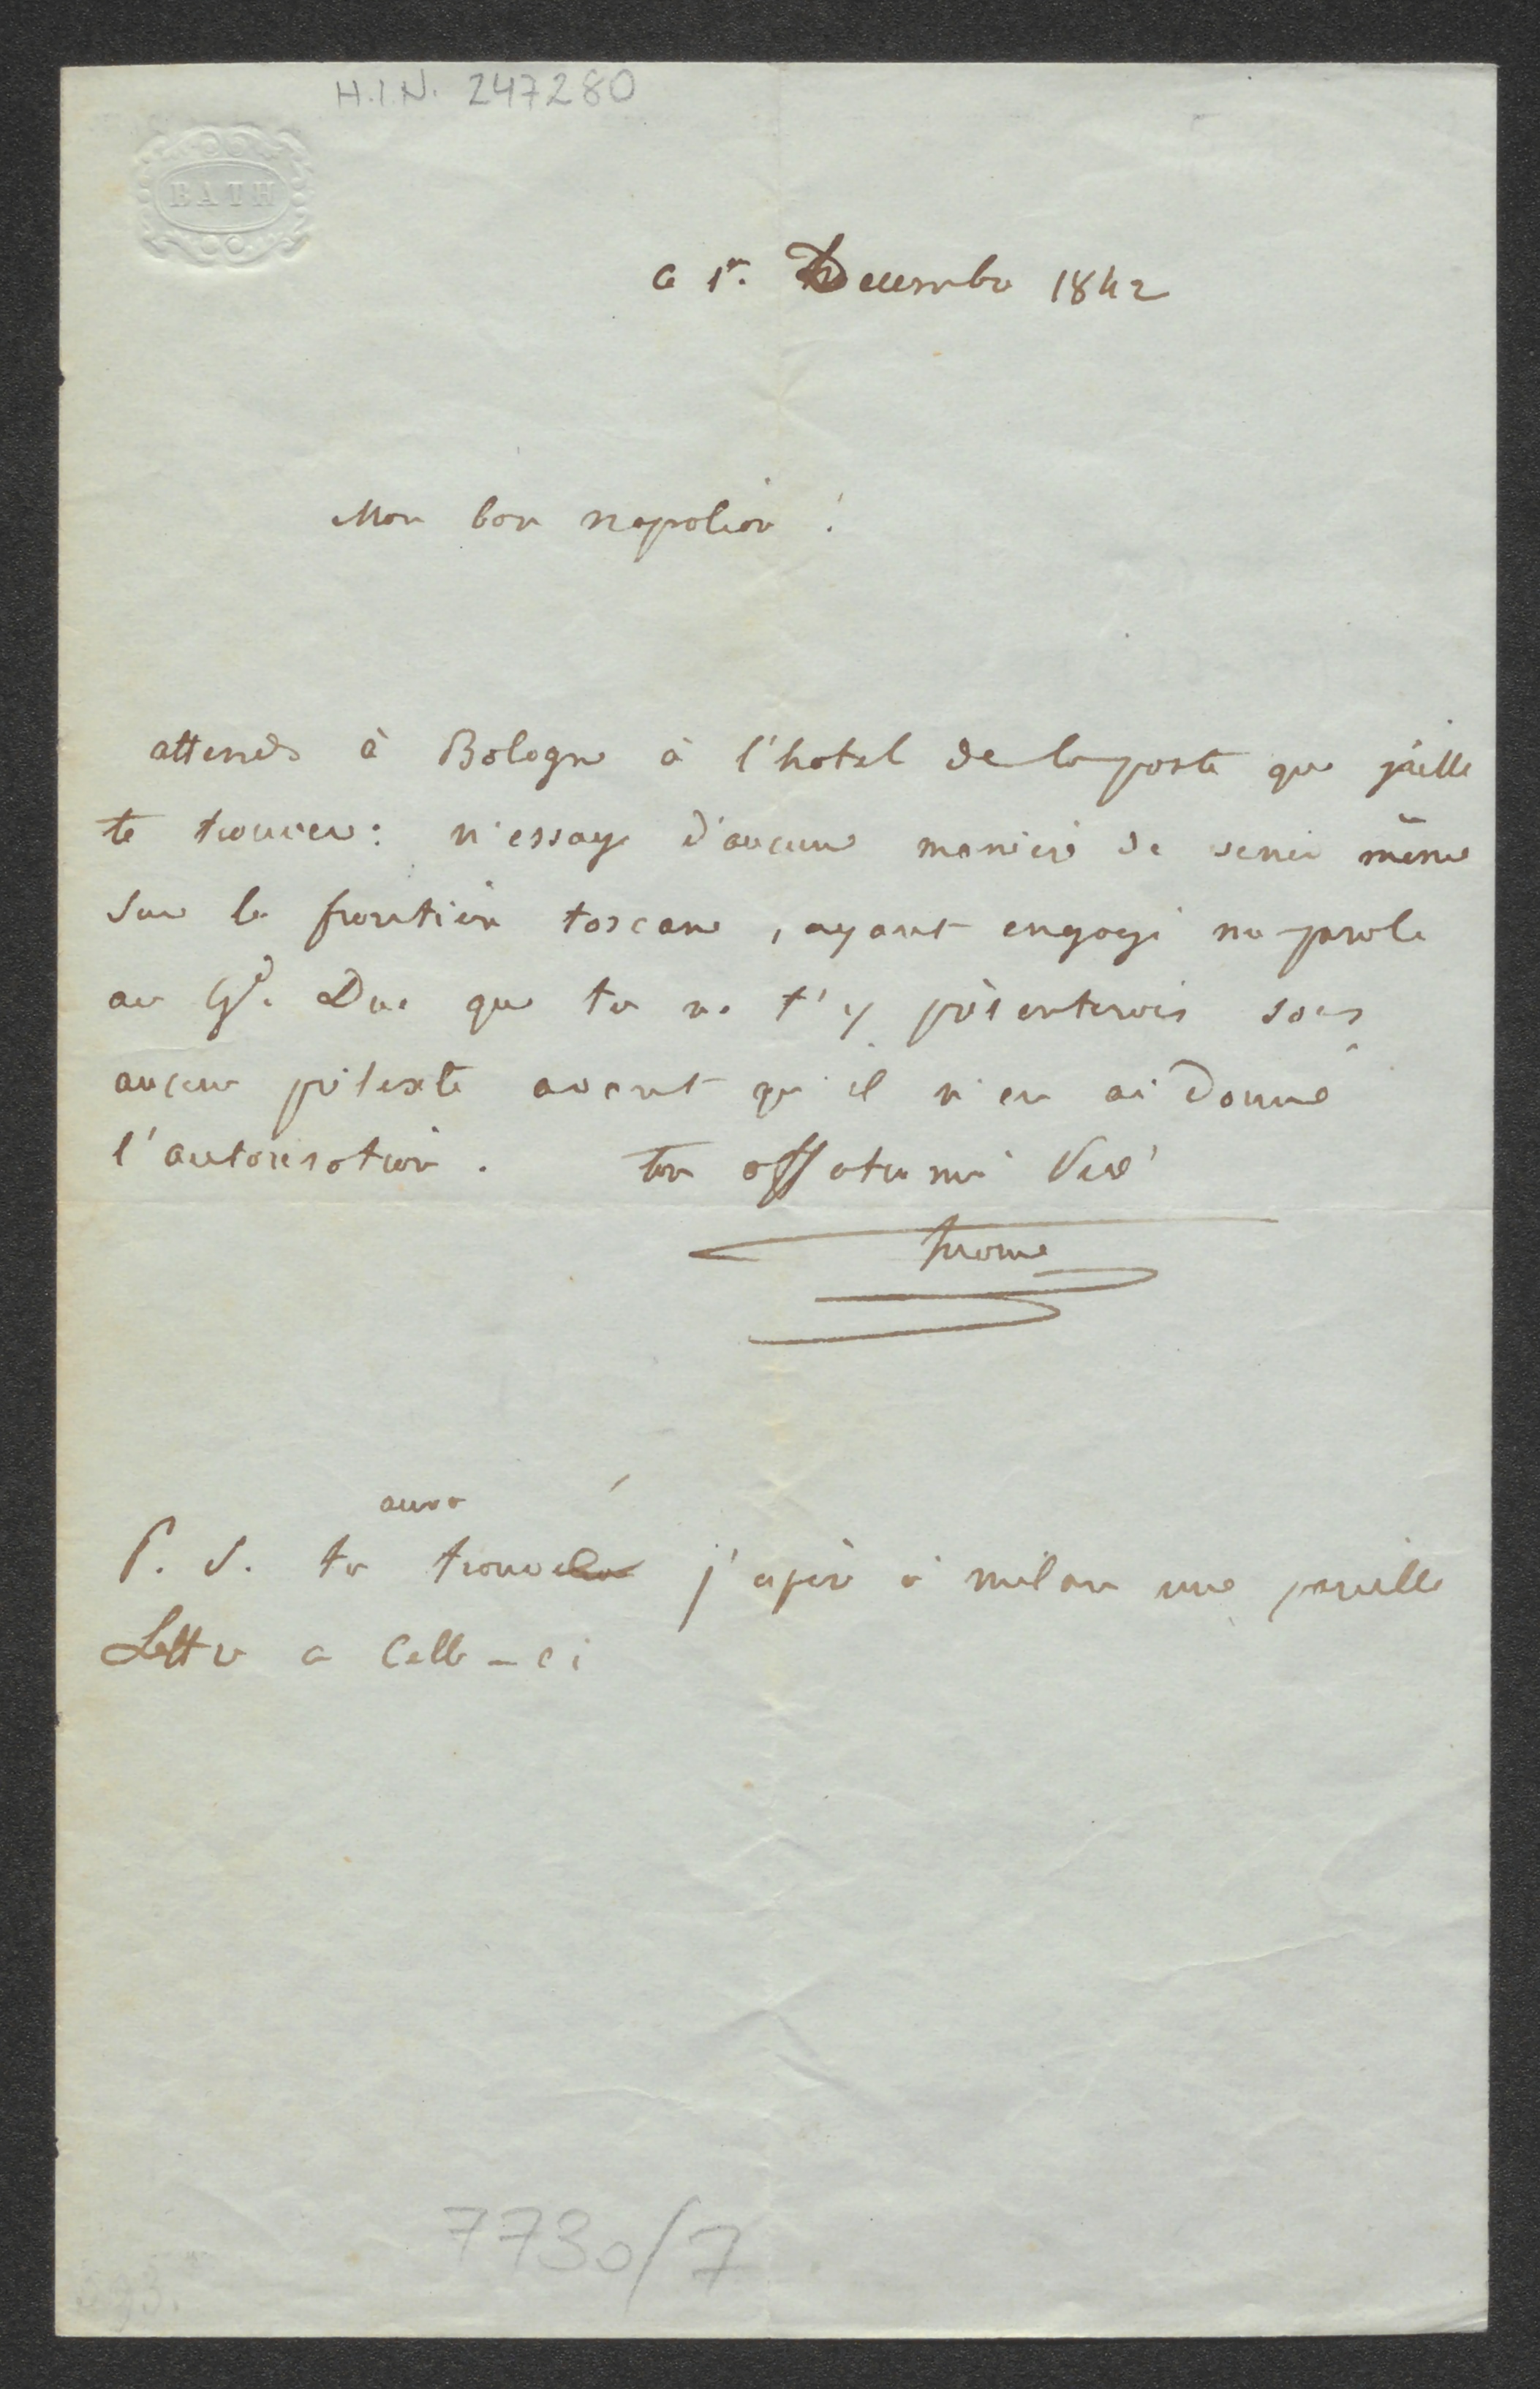 H.I.N. 247280
BATH
Ce 1er. Decembre 1842
Mon bon napoléon !
attends à Bologne à l'hotel de la poste que j'aille
te trouver : n'essaye d'aucune manière de venir même
sur la frontière toscane, ayant engagé ma parole
au Gd. Duc que tu ne t'y présenterois sous
aucun prétexte avant qu'il n'en ai donné
l'autorisation. ton affectionné
Jérome
aura
P. S. tu trouvé j'espère à milan une pareille
Lettre a Celle-ci
7730/7